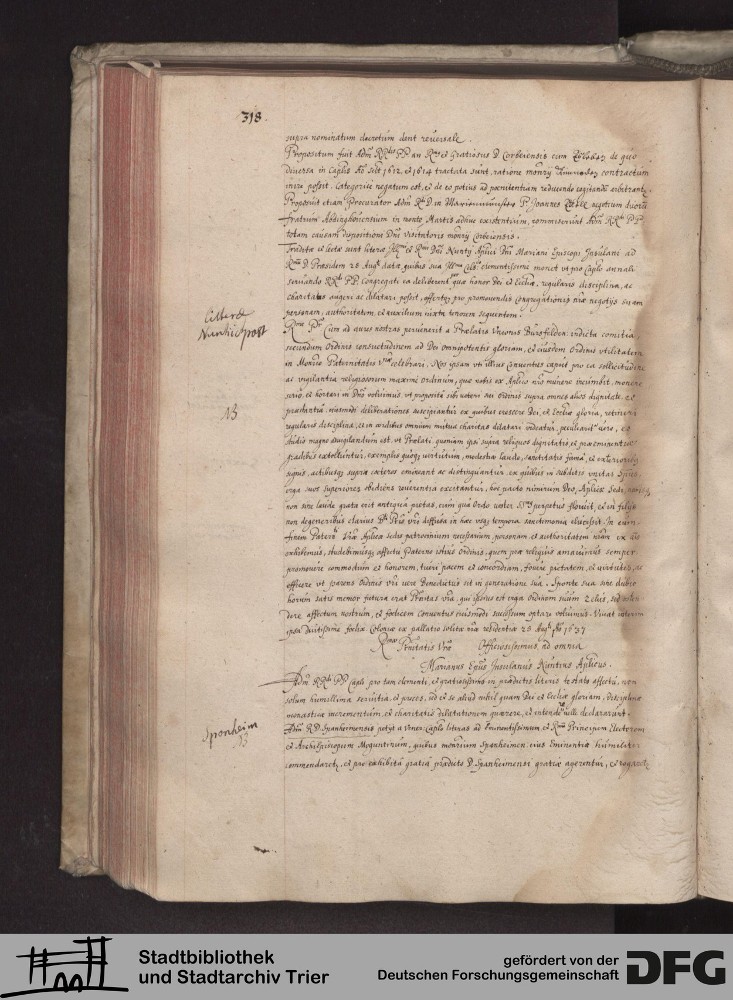 318.
supra nominatum decretum dent reversale.
Propositum fuit Adm RRdis PP an Rmus et Gratiosus D Corbeiensis cum de quo
diversa in Caplis Ao 1612 et 1614 tractata sunt, ratione monrij contractum
inire possit. Categorice negatum est, et de eo potius ad poenitentiam reducendo cogitandum arbitrantr.
Proposuit etiam Procurator Adm Rdi D in P. Joannes negotium duorum
fratrum Abdinghoffensium in monte Martis adhuc existentium, commiserunt Adm RRdi PP
totam causam dispositioni Dni Visitatoris monrij Corbeiensis.
Traditae et lectae sunt literae Illmi et Rmi Dni Nuntij Aplici Dni Mariani Episcopi Insulani ad
Rmum D. Praesidem 28 Augti data, quibus sua Illma Cels. clementissime monet ut pro Caplo annali
servando RRdi PP Congregati ea deliberent qua honor Dei et Ecclia, regularis disciplina, ac
charitas augeri ac dilatari possit, offertq pro promovendis Congregationis nrae negotijs suam
personam, authoritatem, et auxilium iuxta tenorem sequentem.
Litterae
Nuntii Apost
Rme Dne Cum ad aures nostras pervenerit a Praelatis Unionis Bursfelden: indicta comitia,
secundum Ordinis consuetudinem ad Dei omnipotentis gloriam, et eiusdem Ordinis utilitatem
in Monrio Paternitatis Vrae celebrari. Nos ipsam ut illius Conventus caput pro ea sollicitudine
ac vigilantia religiosorum maxime ordinum, quae nobis ex Aplico nro munere incumbit, monere
serio, et hortari in Dno voluimus, ut proposita sibi natem sui Ordinis supra omnes alios dignitate, et
praestantia, eiusmodi deliberationes suscipiantur ex quibus crescere Dei, et Eccliae gloria, retineri
NB
regularis disciplina, et in ordibus omnium mutua charitas dilatari videatur, peculiarit vero, eo
studio magno assignandum est, ut Praelati quoniam ipsi supra reliquos dignitatis, et praeeminentiae
gradibus extolluntur, exemplis quoq virtutum, modestiae laude, sanctitatis fama, et exterioribus
signis, actibusq supra caeteros emineant ac distinguantur, ex quibus in subditis unitas Spiritus,
erga suos Superiores obediens reverentia excitantur, hoc pacto nimirum Deo, Aplicae Sedi, nobisq
non sine laude grata erit antiqua pietas, cum qua Ordo vester SSmus perpetuo floruit, et in filijs
non degeneribus clarius Dni Pris Vri diffusa in haec usq tempora sanctimonia eluxessit. In eum
finem Paternti Vrae Aplicae sedis patrocinium necessarium, personam, et authoritatem nram ex nunc
exhibemus, studebimusq affectu Paterno istius Ordinis, quem prae religiis amavimus semper
promovere commodum et honorem, tueri pacem et concordiam, fovere pietatem, et virtutes, ac
efficere ut parens Ordinis Vri vere Benedictus sit in generatione sua. Sponte sua sine dubio
horum satis memor futura erat Pternitas Vra, qui ipsius est erga Ordinem suum Zelus, sed ostendere
affectum nostrum, et foelicem Conventus eiusmodi successum optare voluimus. Vivat interim
ipsa diutissime foelix. Coloniae ex pallatio solitae nrae residentiae 28 Augti Ao 1637
Rmae Pternitatis Vrae Officiosissimus, ad omnia
Marianus Epus Insulanus Nuntius Aplicus.
Adm RRdi PP Capli pro tam clementi, et gratiosissimo in praedictis literis testato affectu, non
solum humillima servitia, et preces, ad et se aliud nihil quam Dei et Eccliae gloriam, disciplinae
monasticae incrementum, et charitatis dilatationem quaerere, et intendere velle declararunt.
Sponheim
NB
Adm RD Spanheimensis petijt a Vener: Caplo literas ad Eminentissimum, et Rmum Principem Electorem
et Archiepiscopum Moguntinum, quibus monrium Spanheimen. eius Eminentiae humiliter
commendaretr, et pro exhibita gratia praedicto D. Spanheimensi gratiae agerentur, et rogaretr
Stadtbibliothek
und Stadtarchiv Trier
gefördert von der
Deutschen Forschungsgemeinschaft
DFG